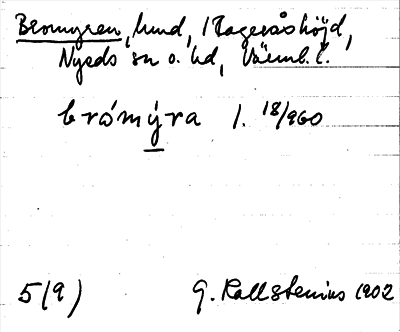 Bromyren, hmd, 1 Hagersåshöjd,
Nyeds sn o. hd, Värml. l.
brómýra l. 18/960
5(9) G. Kallstenius 1902